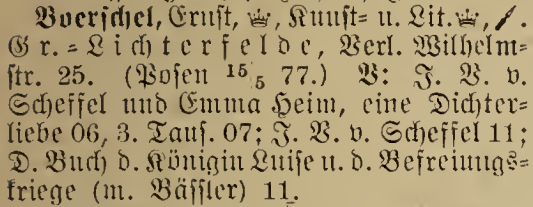 Boerschel, Ernst, ♛, Kunst= u. Lit.♛, /.
Gr.=Lichterfelde, Berl. Wilhelm=
str. 25. (Posen 15/5 77.) V: J. V. v.
Scheffel und Emma Heim, eine Dichter=
liebe 06, 3. Tauf. 07; J. V. v. Scheffel 11;
D. Buch d. Königin Luise u. d. Befreiungs=
kriege (m. Bässler) 11.